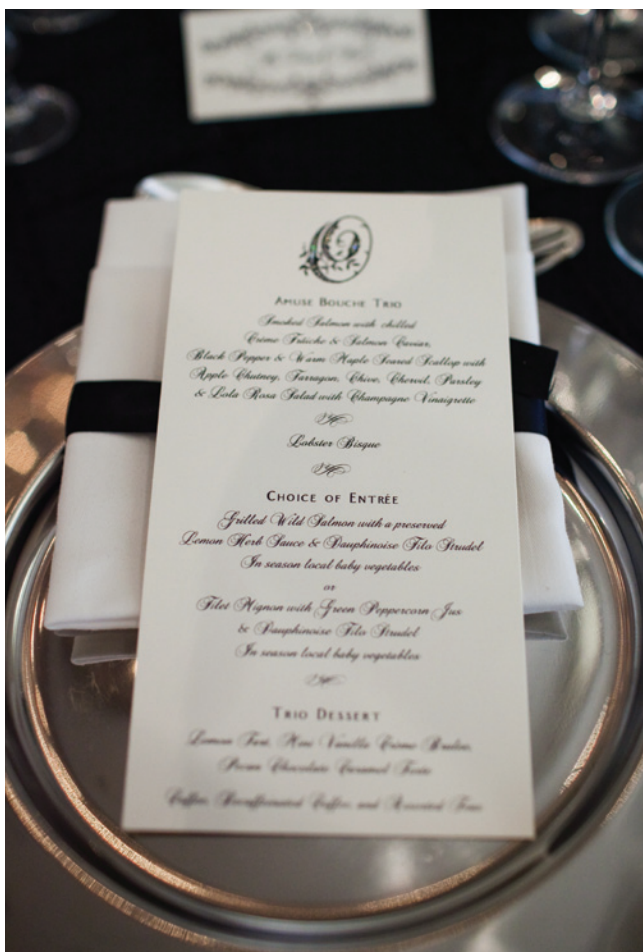 O
Amuse Bouche Trio
Smoked Salmon with chilled
Crème Fraîche & Salmon Caviar,
Black Pepper & Warm Maple Seared Scallop with
Apple Chutney, Tarragon, Chive, Chervil, Parsley
& Lola Rosa Salad with Champagne Vinaigrette
Lobster Bisque
Choice of Entrée
Grilled Wild Salmon with a preserved
Lemon Herb Sauce & Dauphinoise Filo Strudel
In season local baby vegetables
or
Filet Mignon with Green Peppercorn Jus
& Dauphinoise Filo Strudel
In season local baby vegetables
Trio Dessert
Lemon Tart, Mini Vanilla Crème Brulee,
Pecan Chocolate Caramel
Coffee, Decaffeinated Coffee, and Assorted Teas